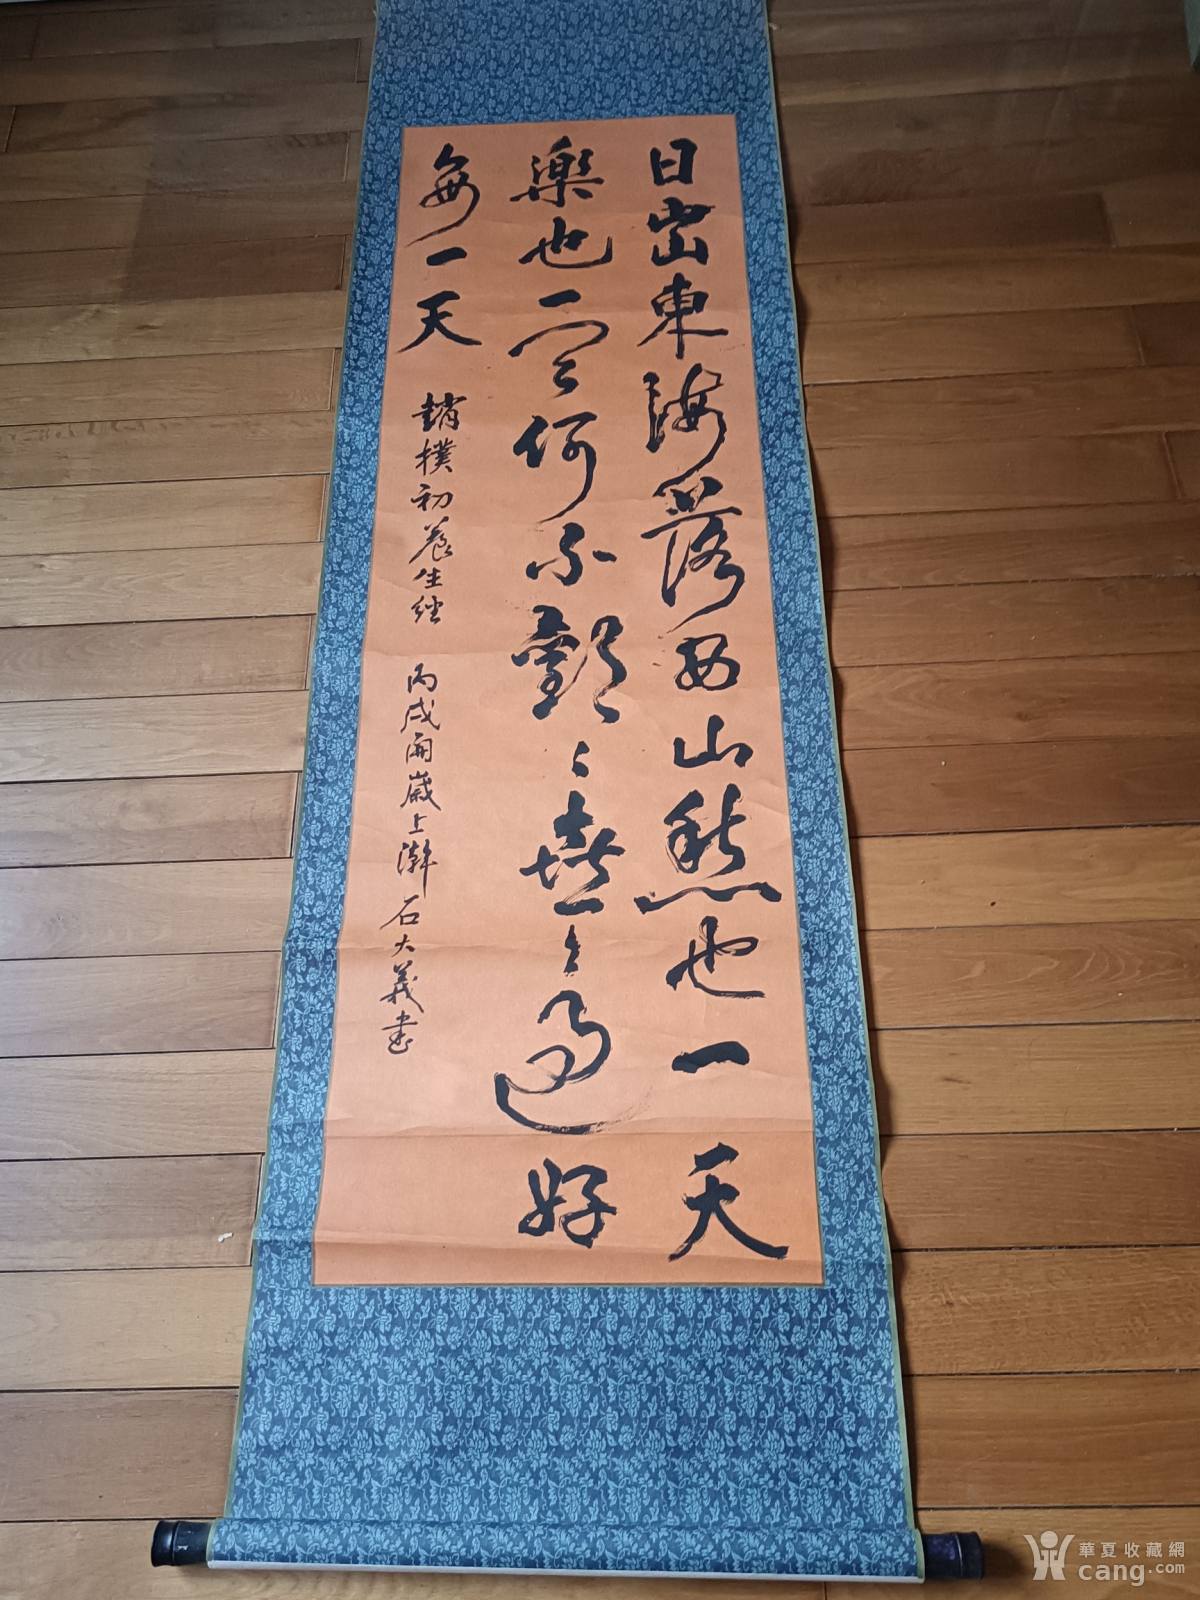 日出東海落西山愁也一天
樂也一天何不歡々喜々過好
每一天
趙樸初養生經 丙戌開歲上澣 石大義書
華夏收藏網
cang.com